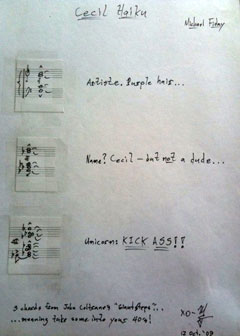 Cecil Haiku
Michael Fiday
Artiste. Purple hair...
Name? Cecil – but not a dude...
Unicorns KICK ASS!!
3 chords from John Coltrane's "Giant Steps"...
...morning take some into your 40s!
XO –
12 Oct. '09